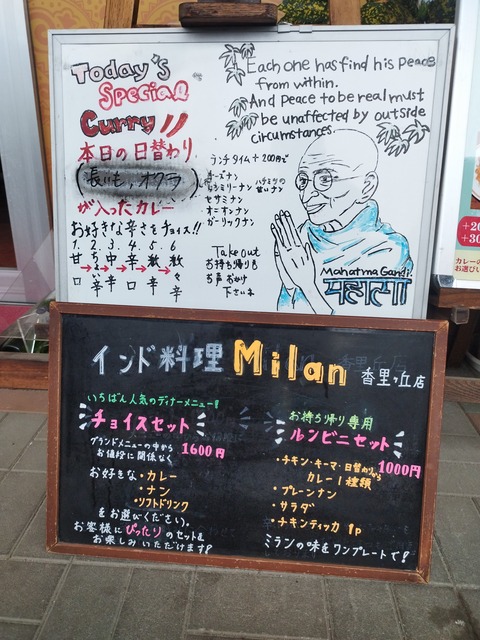 Today's
Special
Curry
本日の日替わり
(長いも、オクラ)
が入ったカレー
お好きな辛さをチョイス!!
1. 2. 3. 4. 5. 6
甘 ち 中 辛 激 激
口 辛 辛 口 辛 辛
Each one has find his peace
from within.
And Peace to be real must
be unaffected by outside
circumstances.
ランチタイム+200円で
チーズナン
ハチミツの
甘いナン
セサミナン
オニオンナン
ガーリックナン
Take out
お持ち帰りも
お声おかけ
下さいネ
Mahatma Gandi
महात्मा
インド料理 Milan 香里ヶ丘店
いちばん人気のディナーメニュー!
チョイスセット
グランドメニューの中から
お値段に関係なく
1600円
お好きな・カレー
・ナン
・ソフトドリンク
をお選びください。
お客様にぴったりのセットを
お楽しみいただけます!
お持ち帰り専用
ルンビニセット
1000円
・チキン・キーマ・日替わりから
カレー1種類
・プレーンナン
・サラダ
・チキンティッカ 1p
ミランの味をワンプレートで!
+20
+30
カレーの
お選びい